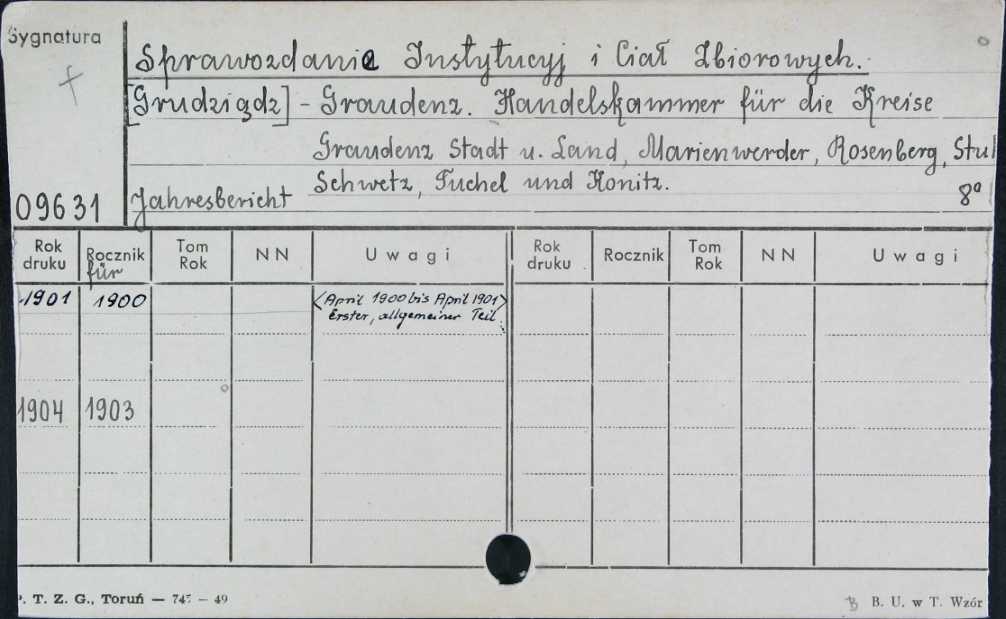 Sygnatura
Sprawozdanie Instytucyj i Ciał Zbiorowych.
[Grudziądz] - Graudenz. Handelskammer für die Kreise
Graudenz Stadt u. Land, Marienwerder, Rosenberg, Stu
Schwetz, Tuchel und Konitz.
09631 Jahresbericht 8°
Rok druku Rocznik Tom Rok NN Uwagi Rok druku Rocznik Tom Rok NN Uwagi
für
1901 1900 <April 1900 bis April 1901>
Erster, allgemeiner Teil.
1904 1903
P. T. Z. G., Toruń — 747 — 49 B. U. w T. Wzór